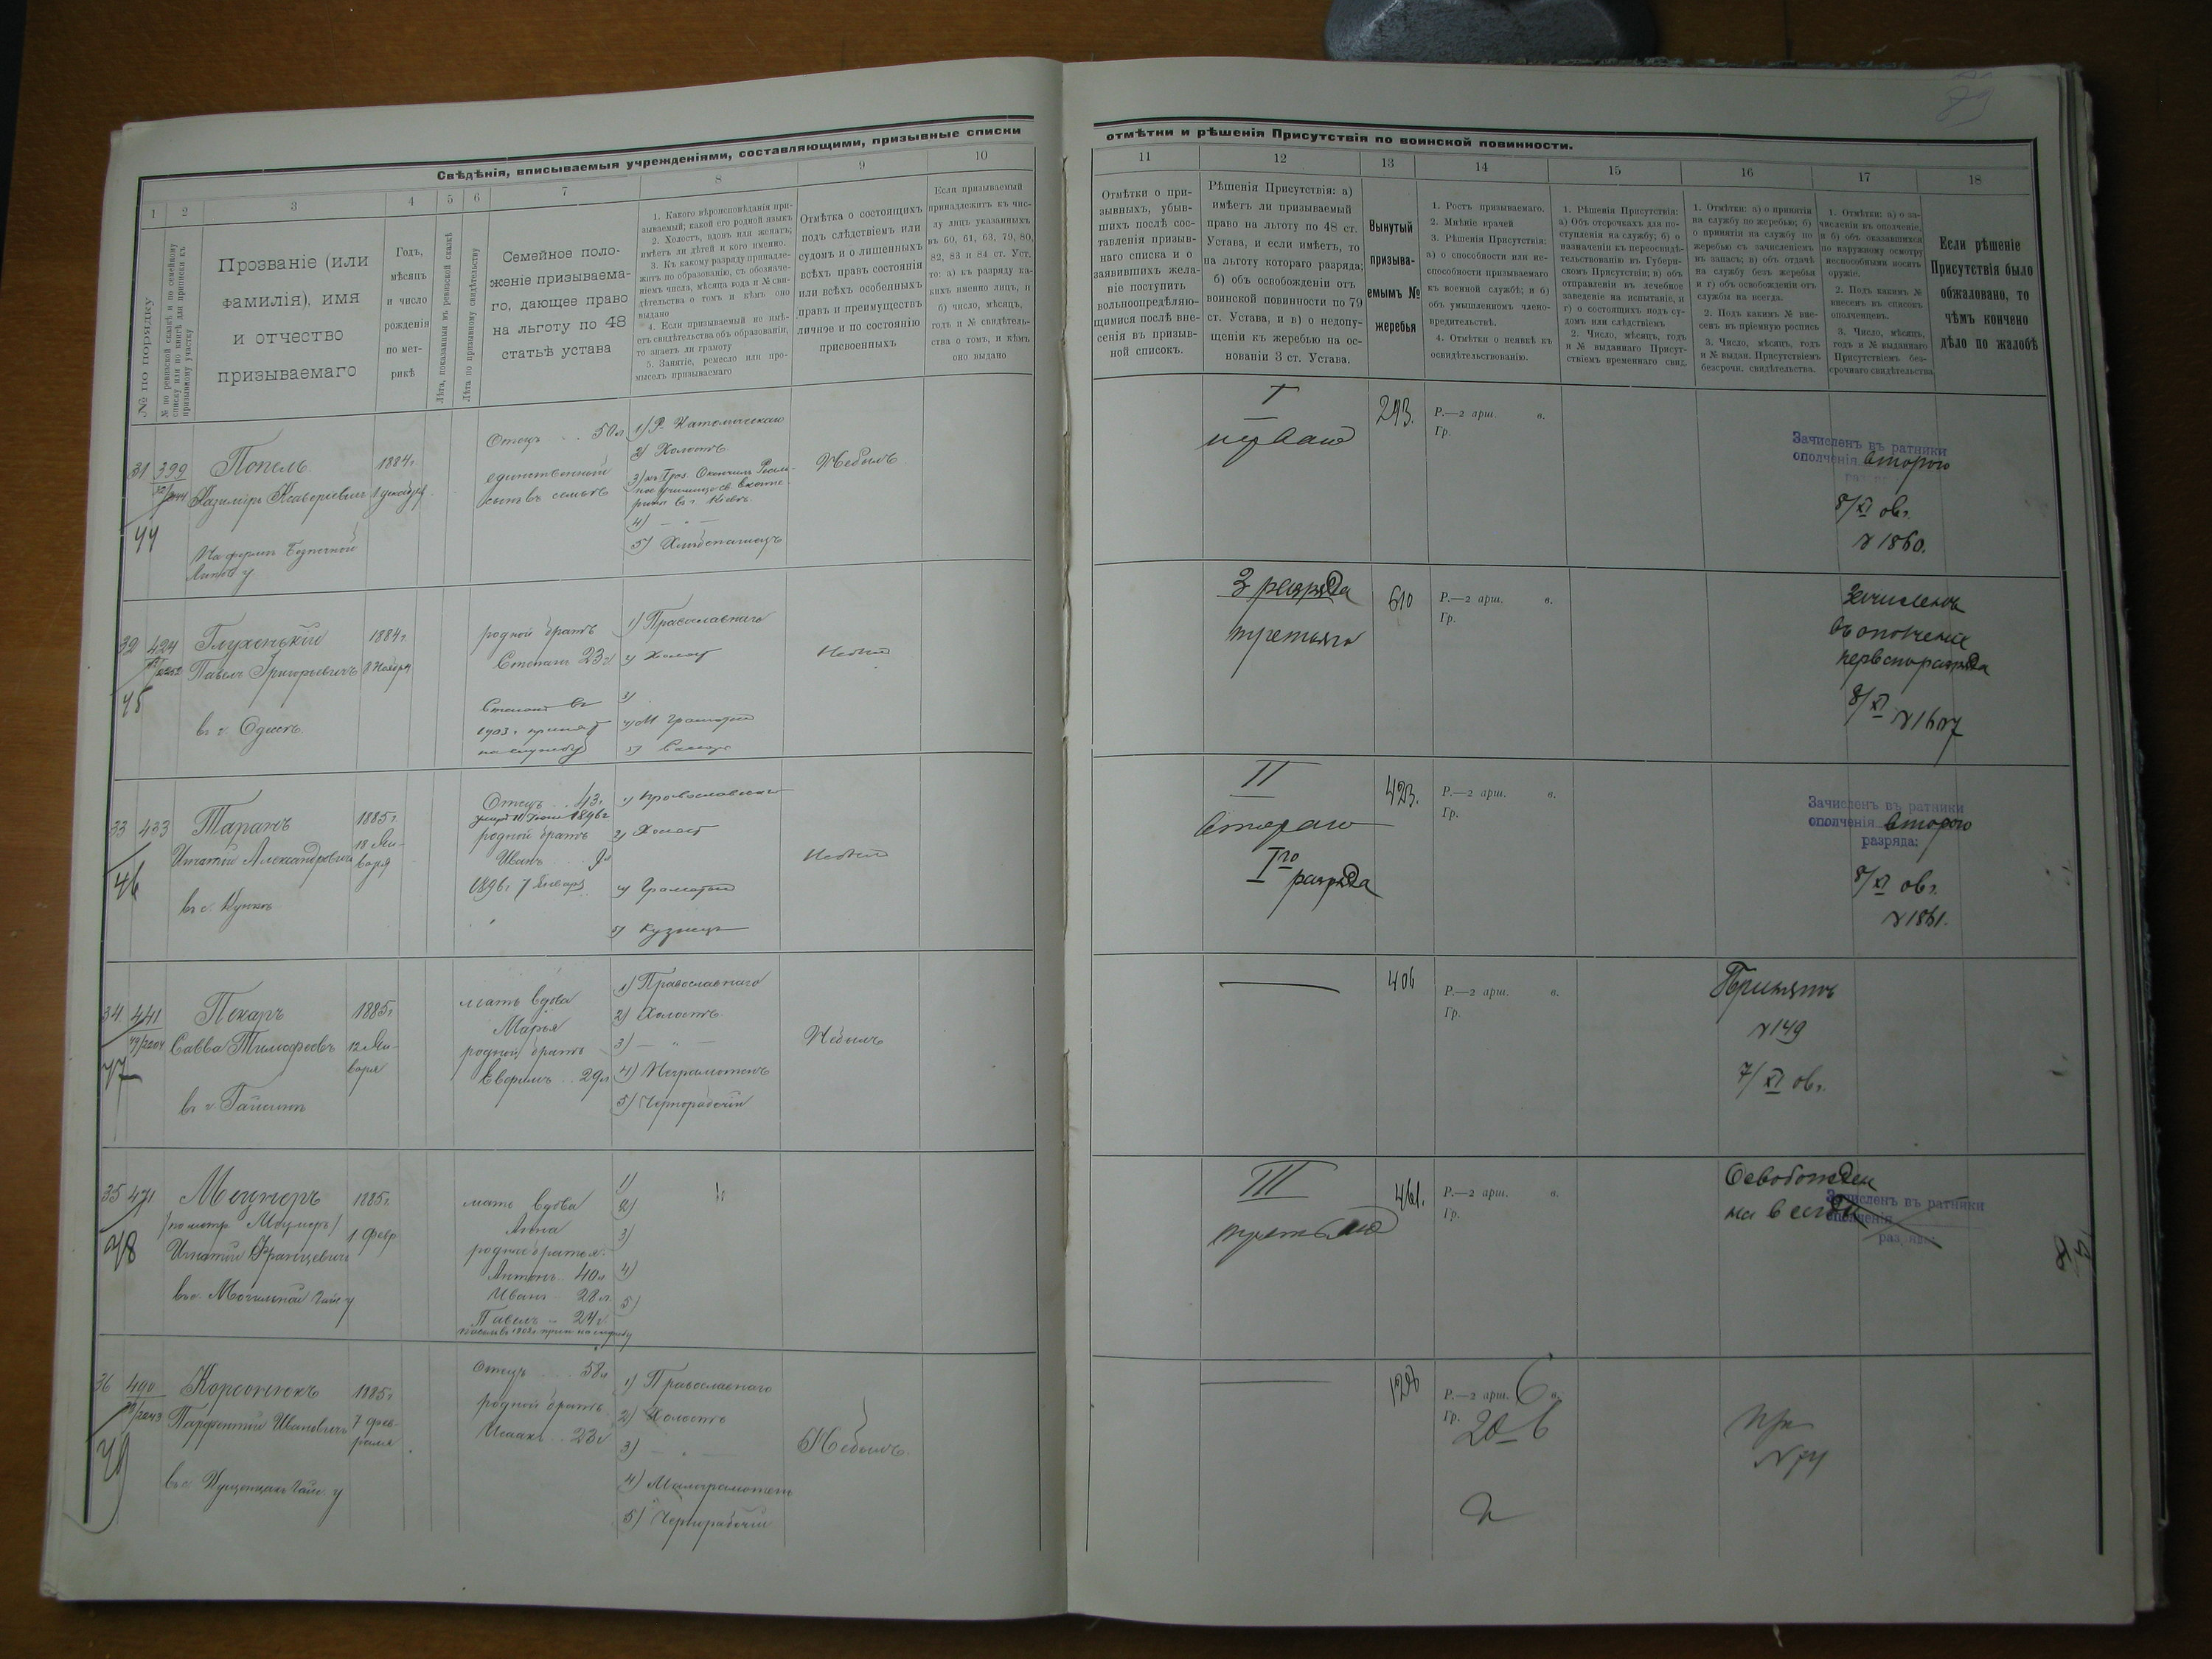 89
Свѣдѣнія, вписываемыя учрежденіями, составляющими, призывные списки
1 2 3 4 5 6 7 8 9 10
№ по порядку
№ по ревизской сказкѣ и по семейному
списку или по книгѣ для приписки къ
призывному участку
Прозваніе (или
фамилія), имя
и отчество
призываемаго
Годъ,
мѣсяцъ
и число
рожденія
по мет-
рикѣ
Лѣта, показанныя въ ревизской сказкѣ
Лѣта по призывному свидѣтельству
Семейное поло-
женіе призываема-
го, дающее право
на льготу по 48
статьѣ устава
1. Какого вѣроисповѣданія при-
зываемый; какой его родной языкъ
2. Холостъ, вдовъ или женатъ;
имѣетъ ли дѣтей и кого именно.
3. Къ какому разряду принадле-
житъ по образованію, съ обозначе-
ніемъ числа, мѣсяца года и № сви-
дѣтельства о томъ и кѣмъ оно
выдано
4. Если призываемый не имѣ-
етъ свидѣтельства объ образованіи,
то знаетъ ли грамоту
5. Занятіе, ремесло или про-
мыселъ призываемаго
Отмѣтка о состоящихъ
подъ слѣдствіемъ или
судомъ и о лишенныхъ
всѣхъ правъ состоянія
или всѣхъ особенныхъ
правъ и преимуществъ
личное и по состоянію
присвоенныхъ
Если призываемый
принадлежитъ къ чис-
лу лицъ указанныхъ
въ 60, 61, 63, 79, 80,
82, 83 и 84 ст. Уст.
то: а) къ разряду ка-
кихъ именно лицъ, и
б) число, мѣсяцъ,
годъ и № свидѣтель-
ства о томъ, и кѣмъ
оно выдано
31 399
44
Попель
Казиміръ Ксаверіевичъ
1884 г.
1 декабря
Отецъ . . 50 л
единственный
сынъ въ семьѣ
1) Р. Католическаго
2) Холостъ
4) — " —
5) Хлѣбопашецъ
Не былъ
32 424
45
Глухенькій
Павелъ Григорьевичъ
въ г. Одессѣ
1884 г.
8 Ноября
родной братъ
Степанъ 23 л
Степанъ въ
1903 г. принятъ
на службу
1) Православнаго
2) Холостъ
3)
33 433
46
Таранъ
Игнатій Александровичъ
1885 г.
18 Ян-
варя
Отецъ . . 43 г.
родной братъ
Иванъ . . . 9 л
1896 г. 7 Января
1) Православнаго
2) Холостъ
4) Грамотный
5) Кузнецъ
34 441
47
Пекарь
Савва Тимофеевъ
въ г. Гайсинѣ
1885 г
12 Ян-
варя
мать вдова
Марья
родной братъ
Евфимъ . . 29 л
1) Православнаго
2) Холостъ
3) — " —
4) Неграмотенъ
5) Чернорабочій
Не былъ
35 471
48
Мецнеръ
Игнатій Францевичъ
въ с. Могильной Гайс. у
1885 г.
1 февр
мать вдова
Анна
родные братья:
Антонъ . . 40 л
Иванъ . . 28 л.
Павелъ . . 24 г.
1)
2)
3)
4)
5)
36 490
49
Корсонюкъ
Парфентій Ивановичъ
1885 г
7 фев-
раля
Отецъ . . . 58 л
родной братъ
Исаакъ . . 23 г
1) Православнаго
2) Холостъ
3) — " —
4) Малограмотенъ
5) Чернорабочій
Не былъ.
отмѣтки и рѣшенія Присутствія по воинской повинности.
11 12 13 14 15 16 17 18
Отмѣтки о при-
зывныхъ, убыв-
шихъ послѣ сос-
тавленія призыв-
наго списка и о
заявившихъ жела-
ніе поступить
вольноопредѣляю-
щимися послѣ вне-
сенія въ призыв-
ной списокъ.
Рѣшенія Присутствія: а)
имѣетъ ли призываемый
право на льготу по 48 ст.
Устава, и если имѣетъ, то
на льготу котораго разряда;
б) объ освобожденіи отъ
воинской повинности по 79
ст. Устава, и в) о недопу-
щеніи къ жеребью на ос-
нованіи 3 ст. Устава.
Вынутый
призыва-
емымъ №
жеребья
1. Ростъ призываемаго.
2. Мнѣніе врачей
3. Рѣшенія Присутствія:
а) о способности или не-
способности призываемаго
къ военной службѣ; и б)
объ умышленномъ члено-
вредительствѣ.
4. Отмѣтки о неявкѣ къ
освидѣтельствованію.
1. Рѣшенія Присутствія:
а) Объ отсрочкахъ для по-
ступленія на службу; б) о
назначеніи къ переосвидѣ-
тельствованію въ Губерн-
скомъ Присутствіи; в) объ
отправленіи въ лечебное
заведеніе на испытаніе, и
г) о состоящихъ подъ су-
домъ или слѣдствіемъ
2. Число, мѣсяцъ, годъ
и № выданнаго Присут-
ствіемъ временнаго свид.
1. Отмѣтки: а) о принятіи
на службу по жеребью; б)
о принятіи на службу по
жеребью съ зачисленіемъ
въ запасъ; в) объ отдачѣ
на службу безъ жеребья
и г) объ освобожденіи отъ
службы на всегда.
2. Подъ какимъ № вне-
сенъ въ пріемную роспись
3. Число, мѣсяцъ, годъ
и № выдан. Присутствіемъ
безсрочн. свидѣтельства.
1. Отмѣтки: а) о за-
численіи въ ополченіе,
и б) объ оказавшихся
по наружному осмотру
неспособными носить
оружіе.
2. Подъ какимъ №
внесенъ въ списокъ
ополченцевъ.
3. Число, мѣсяцъ,
годъ и № выданнаго
Присутствіемъ без-
срочнаго свидѣтельства
Если рѣшеніе
Присутствія было
обжаловано, то
чѣмъ кончено
дѣло по жалобѣ
I
первая
293.
Р.—2 арш. в.
Гр.
Зачисленъ въ ратники
ополченія второго
8/XI 06 г.
№ 1860.
3 разряда
третьяго
610
Р.—2 арш. в.
Гр.
Зачисленъ
въ ополченіе
перваго разряда
8/XI № 1607
II
второго
Iго разряда
423.
Р.—2 арш. в.
Гр.
Зачисленъ въ ратники
ополченія второго
разряда:
8/XI 06 г.
№ 1861.
406
Р.—2 арш. в.
Гр.
Принятъ
№ 149
7/XI 06 г.
III
третьяго
461.
Р.—2 арш. в.
Гр.
Освобожденъ
на всегда
Зачисленъ въ ратники
ополченія
разряда:
126
Р.—2 арш. 6 в.
Гр. 20 6
При
№ 74